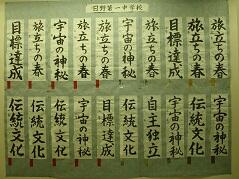 日野第一中学校
旅立ちの春
旅立ちの春
目標達成
旅立ちの春
旅立ちの春
宇宙の神秘
旅立ちの春
宇宙の神秘
旅立ちの春
目標達成
伝統文化
宇宙の神秘
宇宙の神秘
自主独立
伝統文化
目標達成
宇宙の神秘
伝統文化
伝統文化
伝統文化